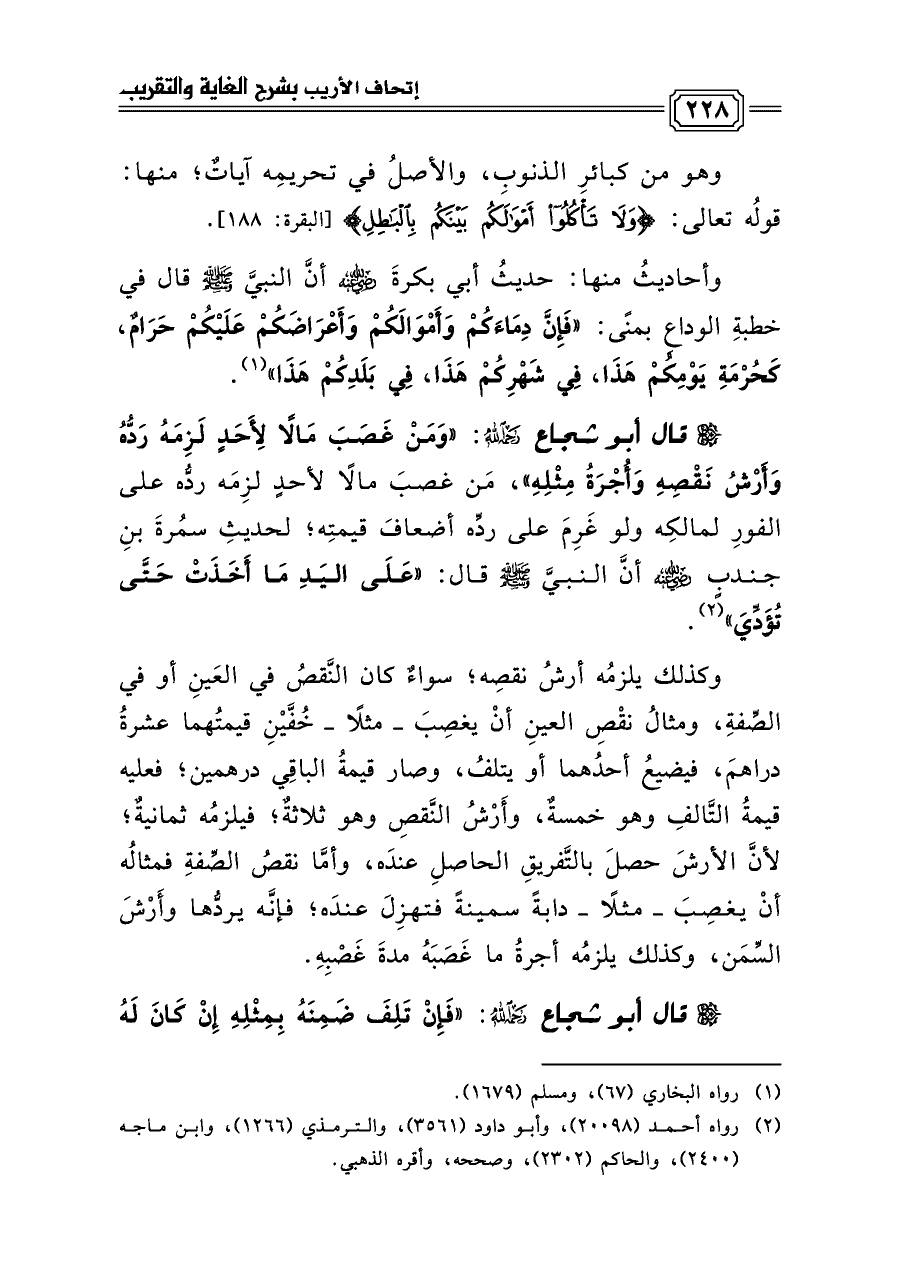 إتحاف الأريب بشرح الغاية والتقريب
٢٢٨
وهو من كبائرِ الذنوبِ، والأصلُ في تحريمِه آياتٌ؛ منها:
قولُه تعالى: ﴿وَلَا تَأْكُلُوٓا۟ أَمْوَٰلَكُم بَيْنَكُم بِٱلْبَٰطِلِ﴾ [البقرة: ١٨٨].
وأحاديثُ منها: حديثُ أبي بكرةَ ﵁ أنَّ النبيَّ ﷺ قال في
خطبةِ الوداعِ بمنًى: «فَإِنَّ دِمَاءَكُمْ وَأَمْوَالَكُمْ وَأَعْرَاضَكُمْ عَلَيْكُمْ حَرَامٌ،
كَحُرْمَةِ يَوْمِكُمْ هَذَا، فِي شَهْرِكُمْ هَذَا، فِي بَلَدِكُمْ هَذَا»(١).
قال أبو شجاع ﵀: «وَمَنْ غَصَبَ مَالًا لِأَحَدٍ لَزِمَهُ رَدُّهُ
وَأَرْشُ نَقْصِهِ وَأُجْرَةُ مِثْلِهِ»، مَن غصبَ مالًا لأحدٍ لزِمَه ردُّه على
الفورِ لمالكِه ولو غَرِمَ على ردِّه أضعافَ قيمتِه؛ لحديثِ سمُرةَ بنِ
جندبٍ ﵁ أنَّ النبيَّ ﷺ قال: «عَلَى اليَدِ مَا أَخَذَتْ حَتَّى
تُؤَدِّيَ»(٢).
وكذلك يلزمُه أرشُ نقصِه؛ سواءٌ كان النَّقصُ في العَينِ أو في
الصِّفةِ، ومثالُ نقْصِ العينِ أنْ يغصِبَ ـ مثلًا ـ خُفَّيْنِ قيمتُهما عشرةُ
دراهمَ، فيضيعُ أحدُهما أو يتلفُ، وصار قيمةُ الباقِي درهمين؛ فعليه
قيمةُ التَّالفِ وهو خمسةٌ، وأَرْشُ النَّقصِ وهو ثلاثةٌ؛ فيلزمُه ثمانيةٌ؛
لأنَّ الأرشَ حصلَ بالتَّفريقِ الحاصلِ عندَه، وأمَّا نقصُ الصِّفةِ فمثالُه
أنْ يغصِبَ ـ مثلًا ـ دابةً سمينةً فتهزِلَ عندَه؛ فإنَّه يردُّها وأَرْشَ
السِّمَن، وكذلك يلزمُه أجرةُ ما غَصَبَهُ مدةَ غَصْبِهِ.
قال أبو شجاع ﵀: «فَإِنْ تَلِفَ ضَمِنَهُ بِمِثْلِهِ إِنْ كَانَ لَهُ
(١) رواه البخاري (٦٧)، ومسلم (١٦٧٩).
(٢) رواه أحمد (٢٠٠٩٨)، وأبو داود (٣٥٦١)، والترمذي (١٢٦٦)، وابن ماجه
(٢٤٠٠)، والحاكم (٢٣٠٢)، وصححه، وأقره الذهبي.